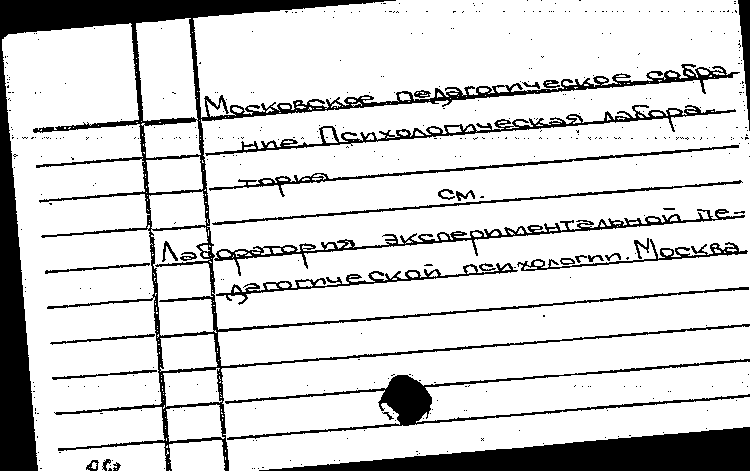 Московское педагогическое собра-
ние. Психологическая лабора-
тория
см.
Лаборатория экспериментальной пе-
дагогической психологии. Москва